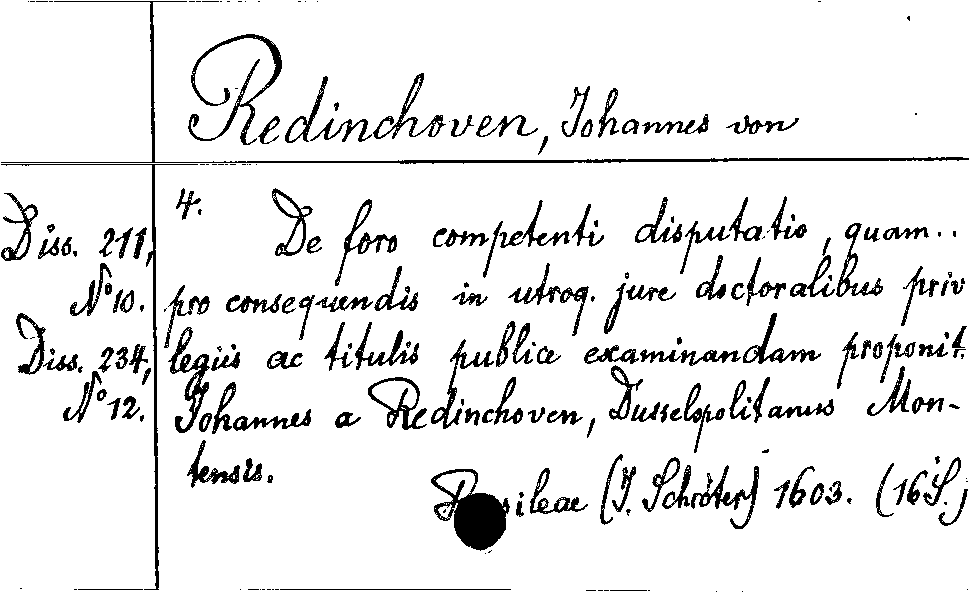 Redinchoven, Johannes von
4.
Diss. 211,
De foro competenti disputatio, quam..
No 10.
pro consequendis in utroq. jure doctoralibus priv
Diss. 234,
legiis ac titulis publice examinandam proponit.
No 12.
Johannes a Redinchoven, Dusselopolitanus Mon-
tensis.
(J. Schröter) 1603. (16 S.)